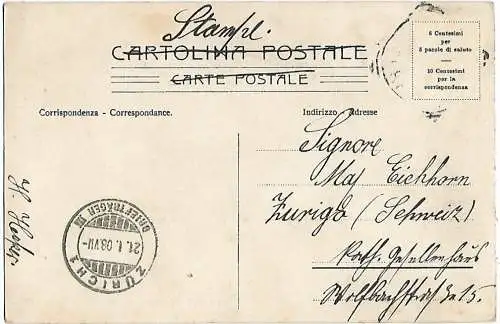 Stampe.
CARTOLINA POSTALE
CARTE POSTALE
5 Centesimi
per
5 parole di saluto
10 Centesimi
per la
corrispondenza
Corrispondenza - Correspondance.
Indirizzo Adresse
Signore
Max Eichhorn
Zurigo (Schweiz)
Kath. Gesellenhaus
Wolfbachstraße 15.
ZÜRICH 1
21.1.08.VII-
BRIEFTRÄGER